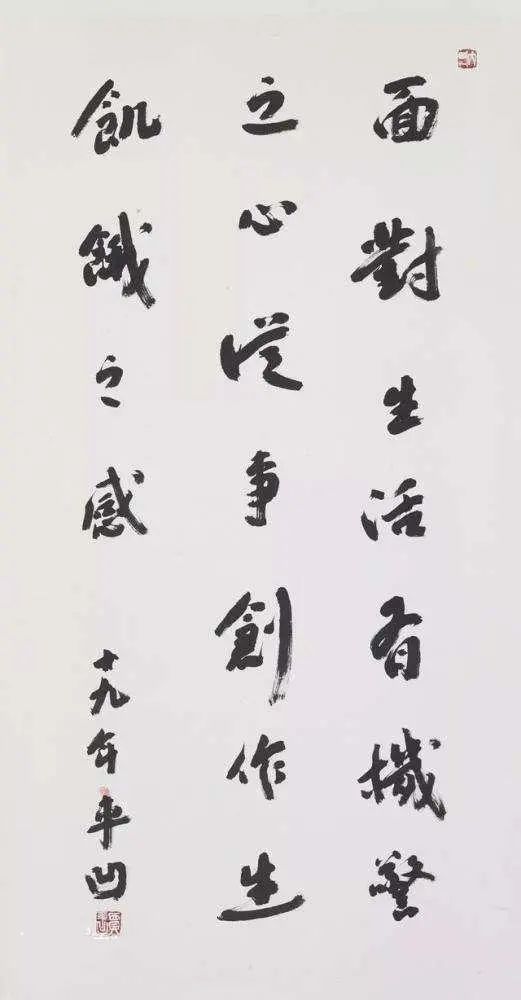 面對生活有機警
之心從事創作生
飢餓之感
十九年平凹